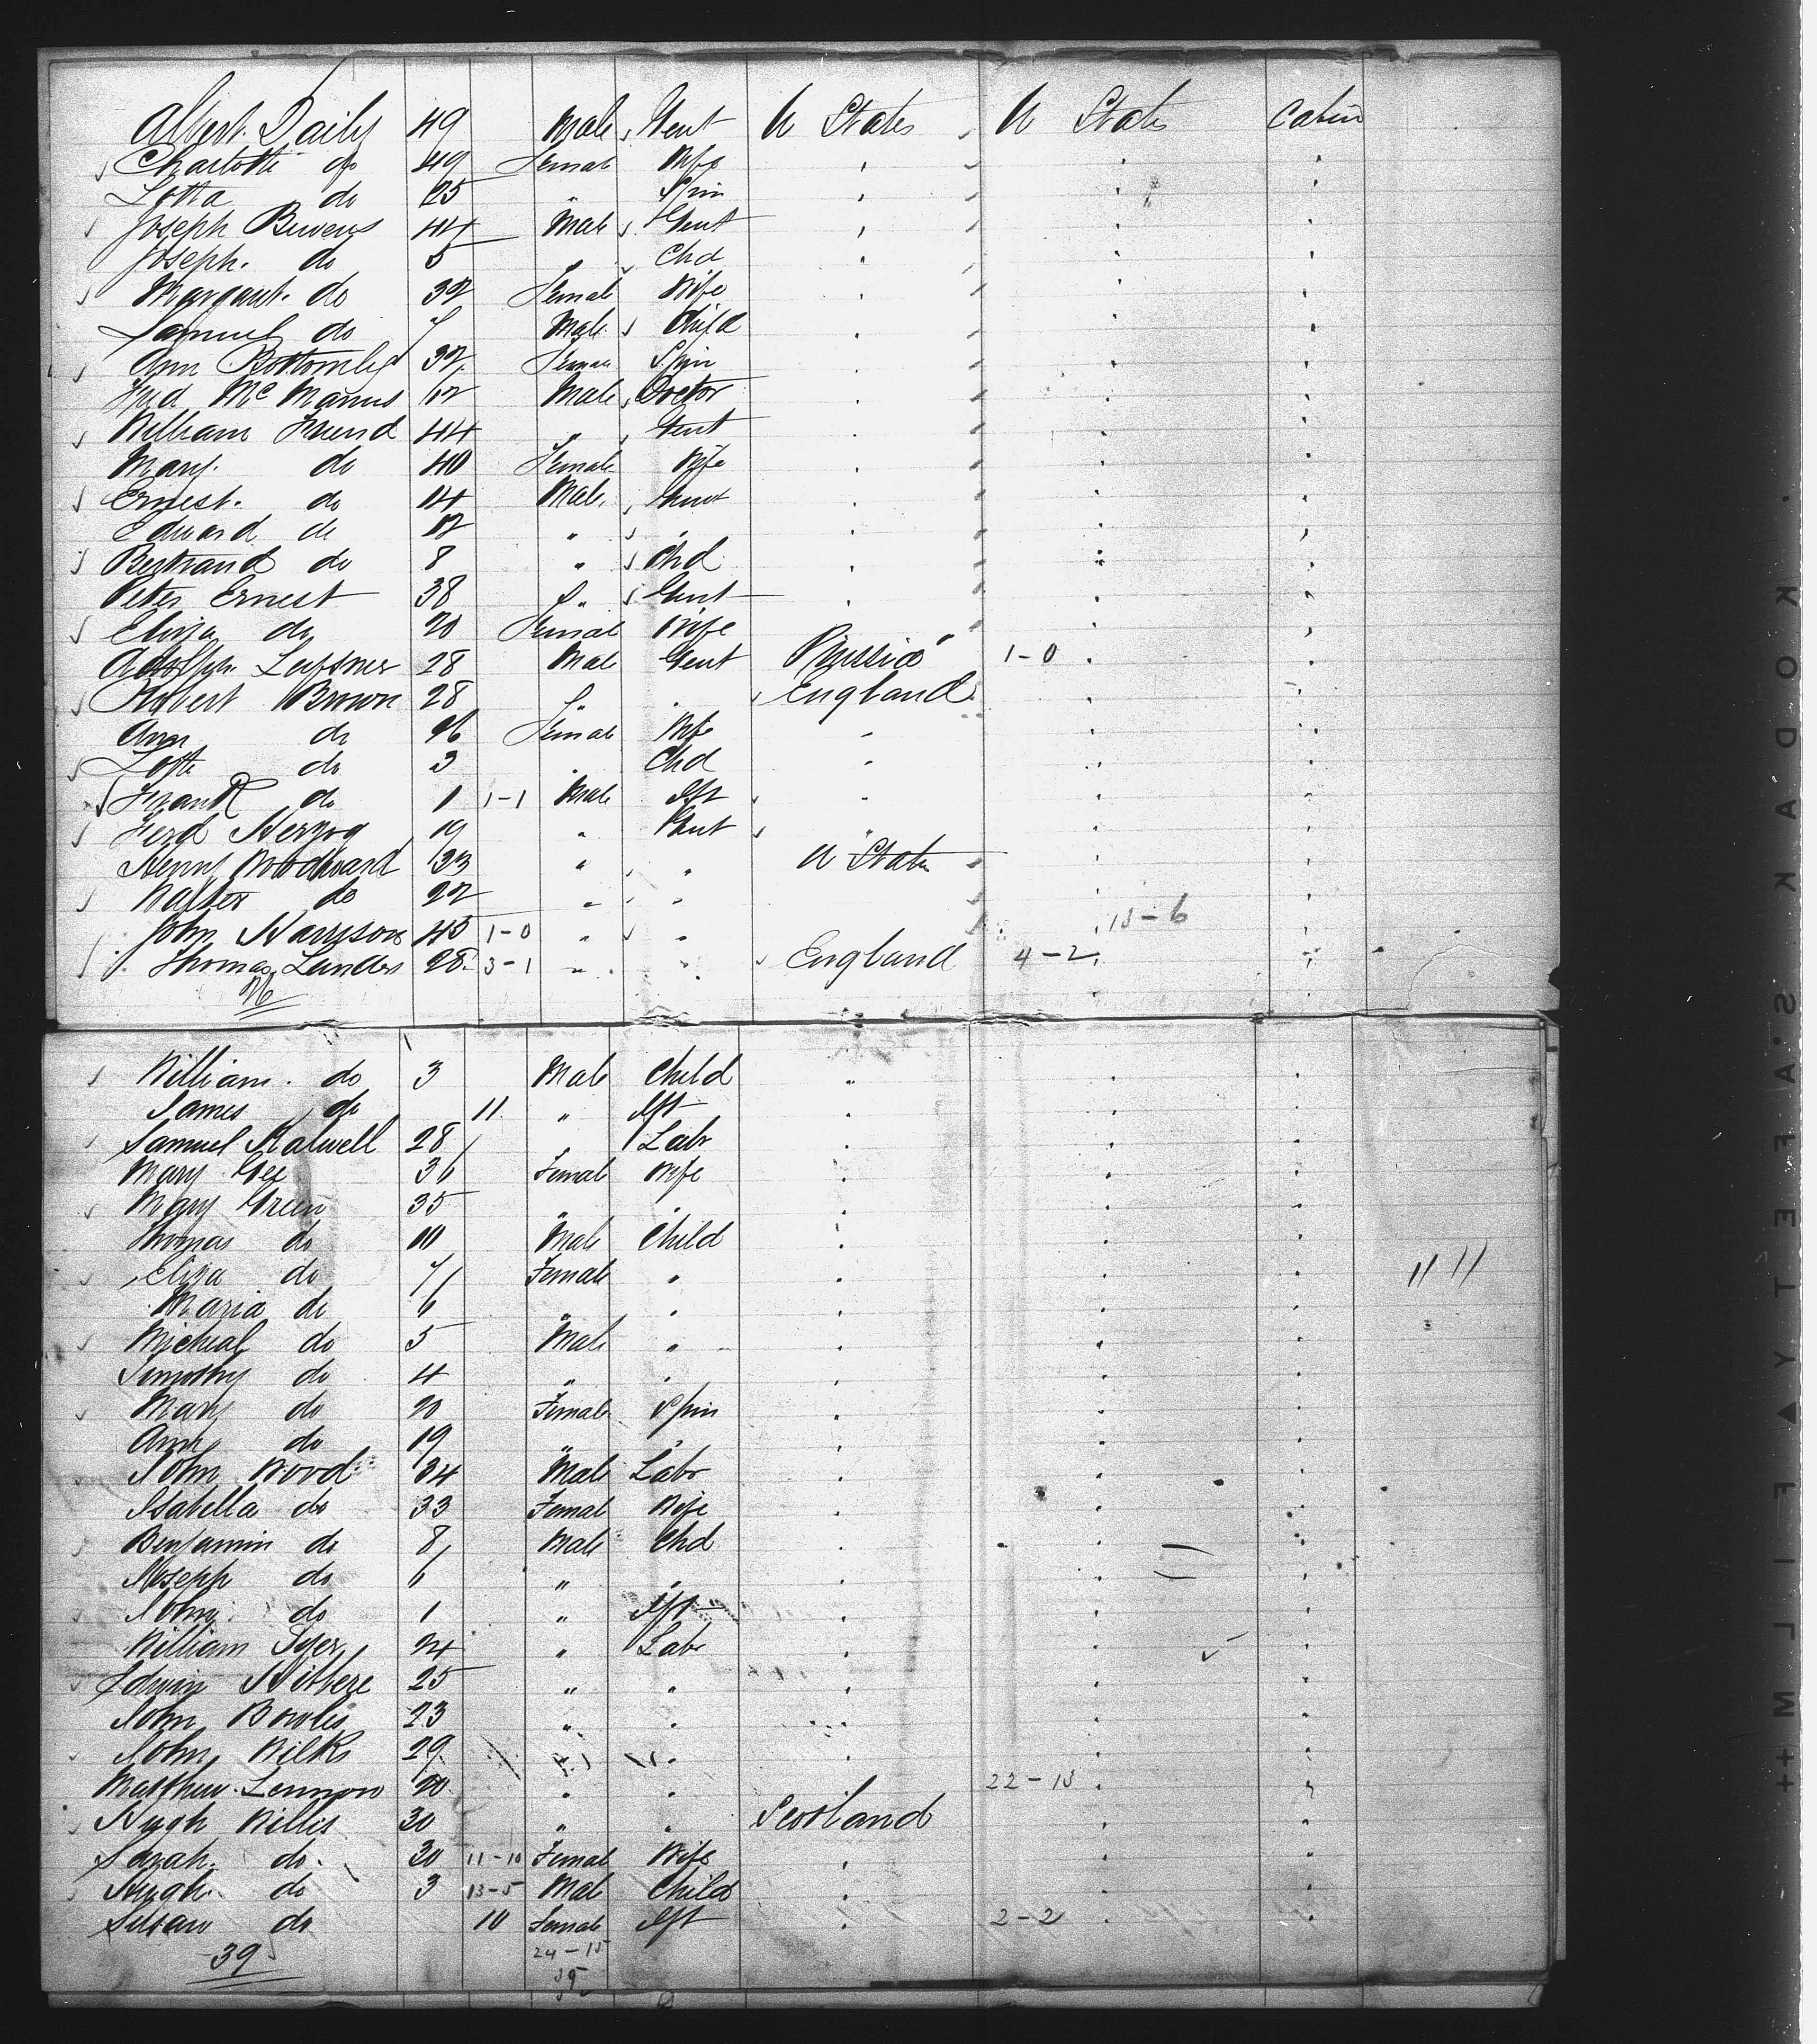 Albert Daily 49 Male Gent U States U States Cabin
Charlotte do 49 Female Wife " " "
Lotta do 25 " Spin " " "
Joseph Buvens 44 Male Gent " " "
Joseph do 5 " Chd " " "
Margaret do 32 Female Wife " " "
Samuel do 7 Male Child " " "
Ann Bottomley 32 Female Spin " " "
Fred McManus 62 Male Doctor " " "
William Friend 44 " Gent " " "
Mary do 40 Female Wife " " "
Ernest do 14 Male Gent " " "
Edward do 12 " " " " "
Bertrand do 8 " Chd " " "
Peter Ernest 38 " Gent " " "
Eliza do 20 Female Wife " " "
Adolph 28 Male Gent 1-0 " "
Robert Brown 28 " " England " "
Ann do 26 Female Wife " " "
Lotte do 3 " Chd " " "
Frank do 1 1-1 Male Ift " " "
Ferd Herzog 19 " Gent " " "
Henry Woodward 33 " " U States " "
Walter do 22 " " " "
John Harrison 45 1-0 " " 13-6 " "
Thomas Landers 28 3-1 " " England 4-2 " "
26
William do 3 Male Child " " "
James do 11 " Ift " " "
Samuel 28 " Labr " " "
Mary Gee 36 Female Wife " " "
Mary Green 35 " " " " "
Thomas do 10 Male Child " " "
Eliza do 7 Female " " " " 11 11
Maria do 6 " " " " "
Micheal do 5 Male " " " "
Timothy do 4 " " " " "
Mary do 20 Female Spin " " "
Ann do 19 " " " " "
John Wood 34 Male Labr " "
Isabella do 33 Female Wife " "
Benjamin do 8 Male Chd " "
Joseph do 6 " " " " "
John do 1 " Ift " " "
William 24 " Labr " " "
Edwin 25 " " " " "
John Bowles 23 " " " " "
John Wilks 29 " " " " "
Matthew Lennon 20 " " 22-13 " "
Hugh Willis 30 " " Scotland " "
Sarah do 30 11-10 Female Wife " " "
Hugh do 3 13-5 Male Child " " "
Susan do 10 Female Ift " 2-2 " "
39 24-15
39
KODAK · S'AFETY ▲ FILM ++